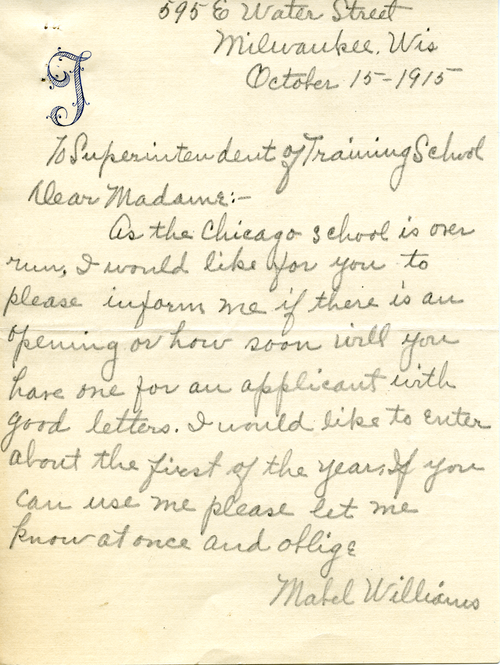 595 E Water Street
Milwaukee, Wis
October 15-1915
J
To Superintendent of Training School
Dear Madame:-
As the Chicago school is over
run, I would like for you to
please inform me if there is an
opening or how soon will you
have one for an applicant with
good letters. I would like to enter
about the first of the year, If you
can use me please let me
know at once and oblige
Mabel Williams